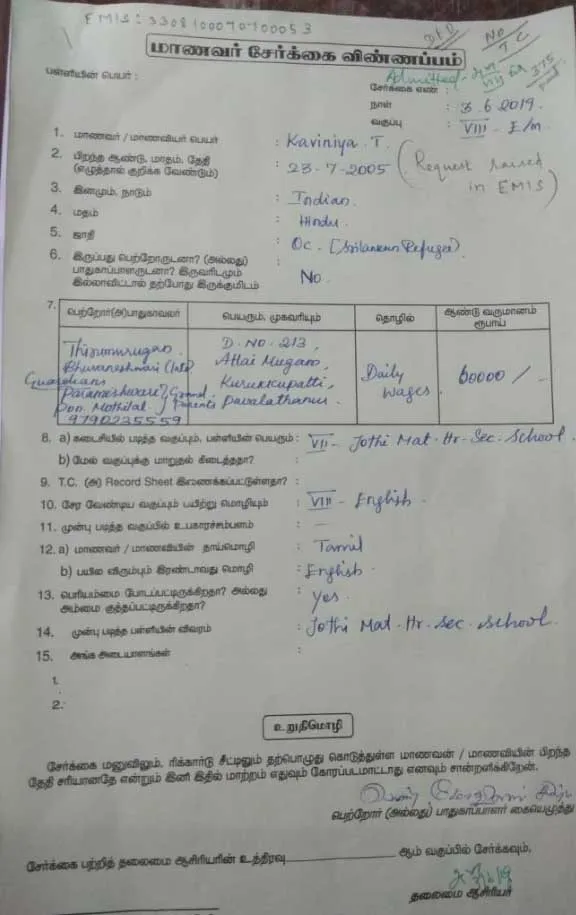 EMIS: 3308100070700053
No
T C
மாணவர் சேர்க்கை விண்ணப்பம்
பள்ளியின் பெயர் :
Admitted
375
சேர்க்கை எண் :
நாள் : 3.6.2019.
வகுப்பு : VIII - E/m.
1. மாணவர் / மாணவியர் பெயர் : Kaviniya . T.
2. பிறந்த ஆண்டு, மாதம், தேதி : 23-7-2005 (Request raised
(எழுத்தால் குறிக்க வேண்டும்) in EMIS)
3. இனமும், நாடும் : Indian
4. மதம் : Hindu
5. ஜாதி : Oc. [Srilankan Refugee)
6. இருப்பது பெற்றோருடனா? (அல்லது)
பாதுகாப்பாளருடனா? இருவரிடமும் : No.
இல்லாவிட்டால் தற்போது இருக்குமிடம்
7. பெற்றோர்(அ)பாதுகாவலர் பெயரும், முகவரியும் தொழில் ஆண்டு வருமானம்
ரூபாய்
Thirumurugan. D. No. 213,
Bhuvaneshwari (late) Attai Mugam,
Guardians
Parameshwari } Grand Kurukkupatti, Daily 60000 / -
Pon. Mothilal. } Parents Pavalathanur. wages.
9790235559
8. a) கடைசியில் படித்த வகுப்பும், பள்ளியின் பெயரும் : VII - Jothi Mat. Hr. Sec. School.
b) மேல் வகுப்புக்கு மாறுதல் கிடைத்ததா? :
9. T.C. (அ) Record Sheet இணைக்கப்பட்டுள்ளதா? :
10. சேர வேண்டிய வகுப்பும் பயிற்று மொழியும் : VIII - English.
11. முன்பு படித்த வகுப்பில் உபகாரச்சம்பளம் : -
12. a) மாணவர் / மாணவியின் தாய்மொழி : Tamil
b) பயில விரும்பும் இரண்டாவது மொழி : English.
13. பெரியம்மை போடப்பட்டிருக்கிறதா? அல்லது : Yes.
அம்மை குத்தப்பட்டிருக்கிறதா?
14. முன்பு படித்த பள்ளியின் விவரம் : Jothi Mat. Hr. Sec. School.
15. அங்க அடையாளங்கள் :
1.
2.
உறுதிமொழி
சேர்க்கை மனுவிலும், ரிக்கார்டு சீட்டிலும் தற்பொழுது கொடுத்துள்ள மாணவன் / மாணவியின் பிறந்த
தேதி சரியானதே என்றும் இனி இதில் மாற்றம் எதுவும் கோரப்படமாட்டாது எனவும் சான்றளிக்கிறேன்.
பெற்றோர் (அல்லது) பாதுகாப்பாளர் கையெழுத்து
சேர்க்கை பற்றித் தலைமை ஆசிரியரின் உத்திரவு ஆம் வகுப்பில் சேர்க்கவும்,
தலைமை ஆசிரியர்